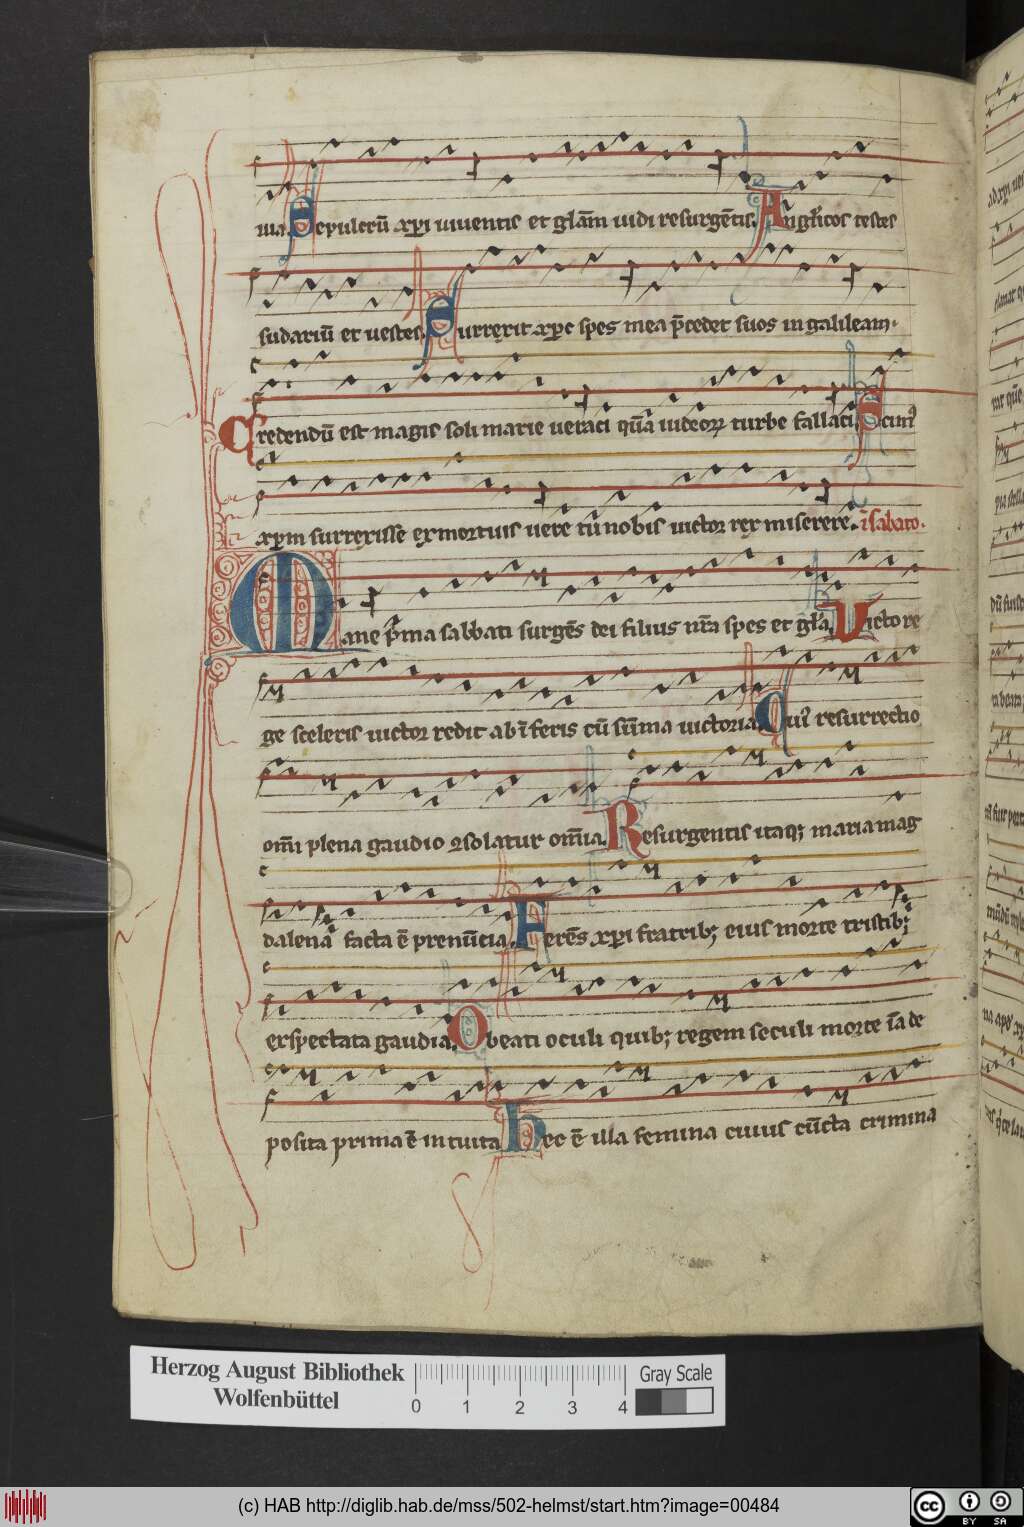 uia. Sepulcrū xp̄i uiuentis et glām uidi resurgētis. Anglīcos testes
sudariū et uestes. Surrexit xp̄c spes mea p̄cedet suos in galileam.
Credendū est magis soli marie ueraci quā iudeoꝝ turbe fallaci. Scimꝰ
xp̄m surrexisse ex mortuis uere tū nobis uictor rex miserere. ī sabato.
Mane p̄ma sabbati surgēs dei filius nr̄a spes et gl̄a Victo re
ge sceleris uictor redit ab īferis cū sūma uictoria. Cuiꝰ resurrectio
om̄i plena gaudio ꝯsolatur om̄ia. Resurgentis itaqꝫ maria mag
dalena facta ē prenūcia. Ferēs xp̄i fratribꝫ eius morte tristibꝫ
exspectata gaudia. O beati oculi quibꝫ regem seculi morte iā de
posita prima ē intuita hec ē illa femina cuius cūcta crimina
Herzog August Bibliothek
Wolfenbüttel
0 1 2 3 4
Gray Scale
(c) HAB http://diglib.hab.de/mss/502-helmst/start.htm?image=00484
cc BY SA